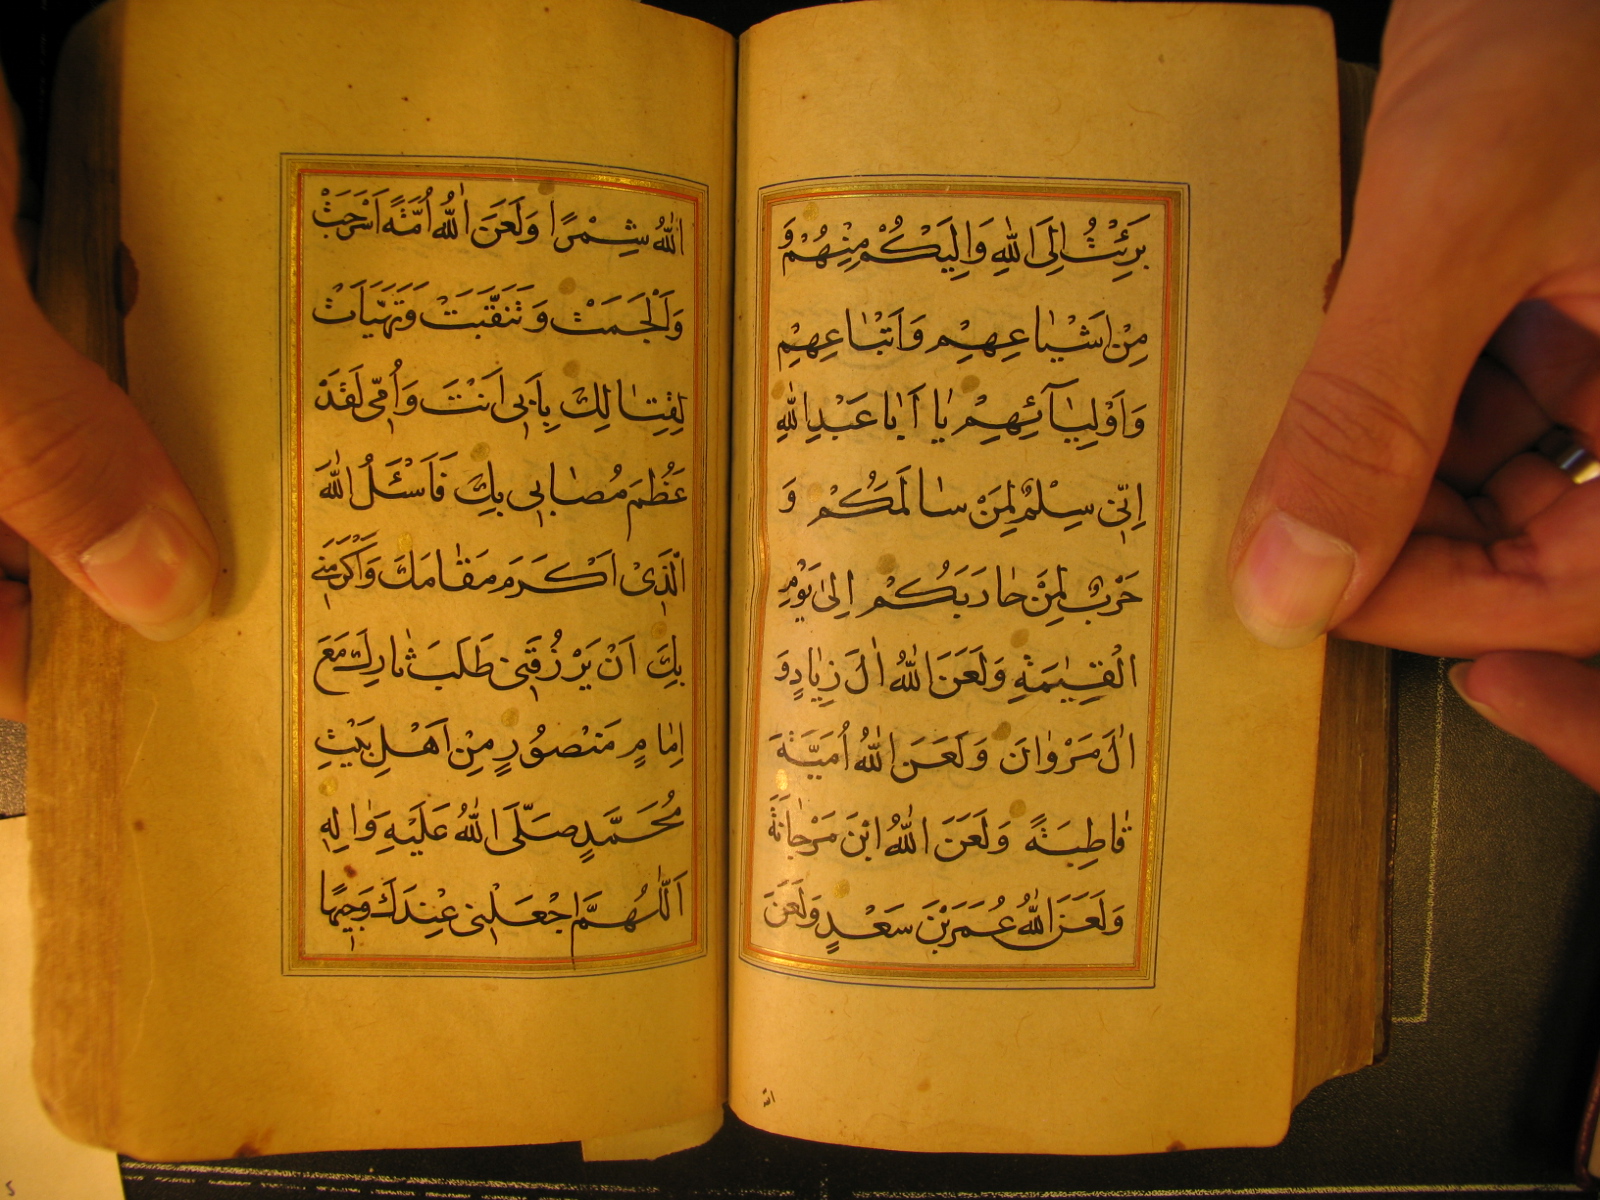 بَرِئْتُ اِلَى اللهِ وَاِلَيْكُمْ مِنْهُمْ وَ
مِنْ اَشْيٰاعِهِمْ وَاَتْبٰاعِهِمْ
وَاَوْلِيٰآئِهِمْ يٰا اَبٰا عَبْدِ اللهِ
اِنّى سِلْمٌ لِمَنْ سٰالَمَكُمْ وَ
حَرْبٌ لِمَنْ حٰارَبَكُمْ اِلىٰ يَوْمِ
الْقِيٰمَةِ وَلَعَنَ اللهُ اٰلَ زِيٰادٍ وَ
اٰلَ مَرْوٰانَ وَلَعَنَ اللهُ اُمَيَّةَ
قٰاطِبَةً وَلَعَنَ اللهُ ابْنَ مَرْجٰانَةَ
وَلَعَنَ اللهُ عُمَرَ بْنَ سَعْدٍ وَلَعَنَ
الله
اللهُ شِمْرًا وَلَعَنَ اللهُ اُمَّةً اَسْرَجَتْ
وَاَلْجَمَتْ وَتَنَقَّبَتْ وَتَهَيَّاَتْ
لِقِتٰالِكَ بِاَبى اَنْتَ وَاُمّى لَقَدْ
عَظُمَ مُصٰابى بِكَ فَاَسْئَلُ اللهَ
الَّذى اَكْرَمَ مَقٰامَكَ وَاَكْرَمَنى
بِكَ اَنْ يَرْزُقَنى طَلَبَ ثٰارِكَ مَعَ
اِمٰامٍ مَنْصُورٍ مِنْ اَهْلِ بَيْتِ
مُحَمَّدٍ صَلَّى اللهُ عَلَيْهِ وَاٰلِهِ
اَللّٰهُمَّ اجْعَلْنى عِنْدَكَ وَجيهًا